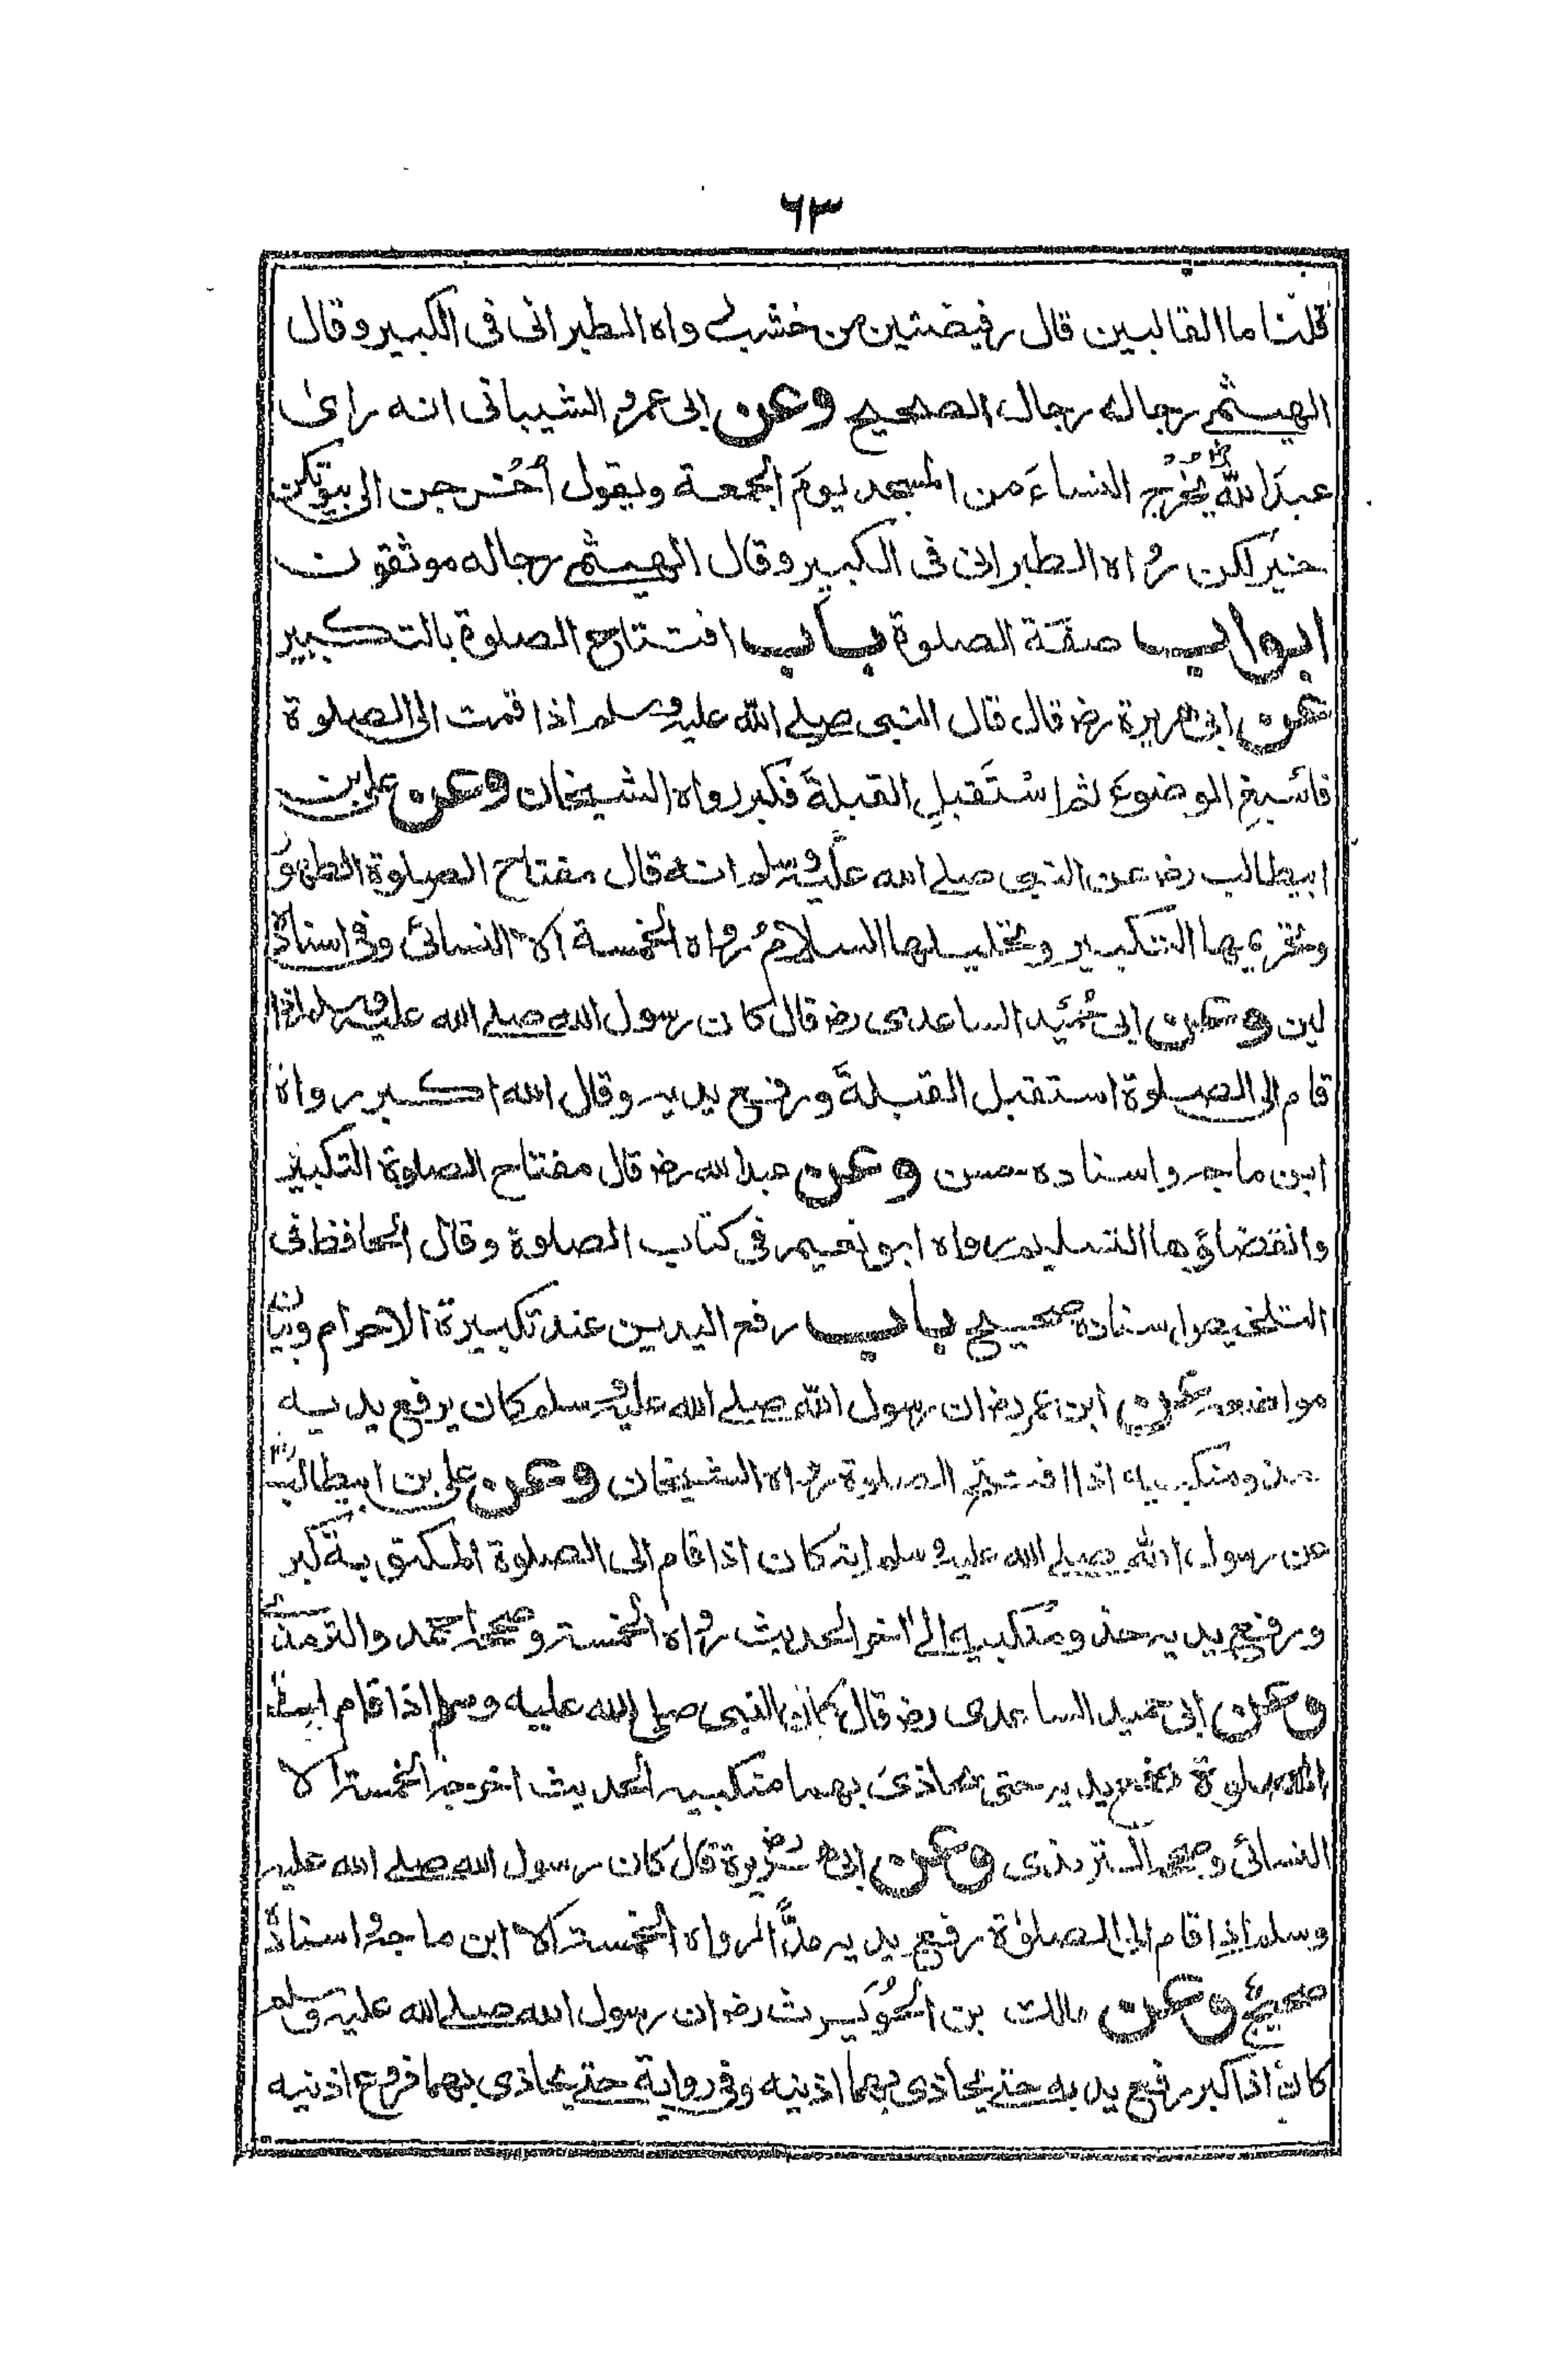 ٦٣
قلنا ما القالبين قال رفيضتين من خشب رواه الطبرانى فى الكبير وقال
الهيثمى رجاله رجال الصحيح وعن ابى عمرو الشيبانى انه راى
عبدَ اللّه يُخْرِجُ النساءَ من المسجد يومَ الجمعة ويقول اُخْرُجن الى بيوتكن
خير لكن رواه الطبرانى فى الكبير وقال الهيثمى رجاله موثقون
ابواب صفة الصلوة باب افتتاح الصلوة بالتكبير
عن ابى هريرة رض قال قال النبى صلى اللّه عليه وسلم اذا قمت الى الصلوة
فأسبغِ الوضوءَ ثم اسْتَقبلِ القبلةَ فكبر رواه الشيخان وعن على بن
ابيطالب رض عن النبى صلى الله عليه وسلم انه قال مفتاح الصلوة الطهورُ
وتحريمها التكبير وتحليلها السلامُ رواه الخمسة الا النسائى وفى اسناده
لين وعن ابى حُمَيد الساعدى رض قال كان رسول الله صلى الله عليه وسلم اذا
قام الى الصلوة استقبل القبلةَ ورفع يديه وقال الله اكبر رواه
ابن ماجه واسناده حسن وعن عبد الله رض قال مفتاح الصلوة التكبير
وانقضاؤها التسليم رواه ابو نعيم فى كتاب الصلوة وقال الحافظ فى
التلخيص واسناده صحيح باب رفع اليدين عند تكبيرة الاحرام وبيان
مواضعه عن ابن عمر رض ان رسول اللّه صلى الله عليه وسلم كان يرفع يديه
حذو منكبيه اذا افتتح الصلوة رواه الشيخان وعن على بن ابيطالب رض
عن رسول اللّه صلى الله عليه وسلم انه كان اذا قام الى الصلوة المكتوبة كبر
ورفع يديه حذو منكبيه الى اخر الحديث رواه الخمسة وصححه احمد والترمذى
وعن ابى حميد الساعدى رض قال كان النبى صلى الله عليه وسلم اذا قام الى
الصلوة رفع يديه حتى يحاذىَ بهما منكبيه الحديث اخرجه الخمسة الا
النسائى وصححه الترمذى وعن ابى هريرة رض قال كان رسول الله صلى الله عليه
وسلم اذا قام الى الصلوٰة رفع يديه مدًّا رواه الخمسة الا ابن ماجه واسناده
صحيح وعن مالك بن الحُوَيرث رض ان رسول الله صلى الله عليه وسلم
كان اذا كبر رفع يديه حتى يحاذى بهما اذنيه وفى رواية حتى يحاذى بهما فروع اذنيه